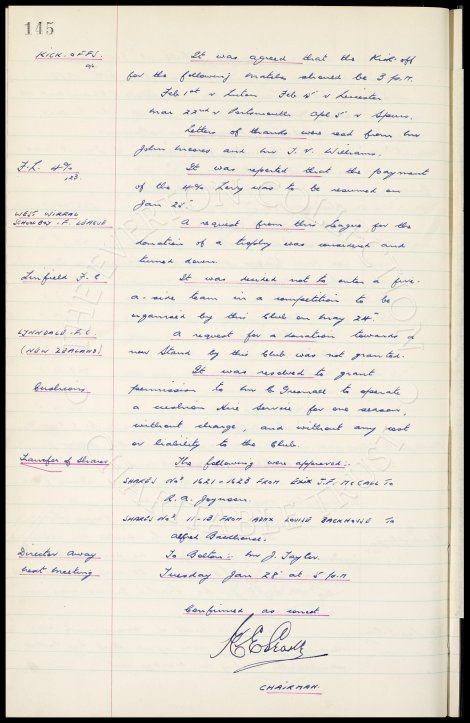 145
KICK-OFFS.
It was agreed that the Kick-off
for the following matches should be 3 p.m.
Feb 1st v Luton Feb 15 v Leicester
Mar 22nd v Portsmouth Apl 5 v Spurs.
Letters of thanks were read from Mr
John Moores and Mr T. V. Williams.
F.L. 4%
It was reported that the payment
of the 4% Levy was to be resumed on
Jan 25.
WEST WIRRAL
SCHOOLBOY. F. LEAGUE
A request from this League for the
donation of a trophy was considered and
turned down.
Linfield F.C
It was decided not to enter a five-
a-side team in a competition to be
organised by this Club on May 24
LYNNDALE. F.C.
(NEW ZEALAND)
A request for a donation towards a
new Stand by this Club was not granted.
Cushions
It was resolved to grant
permission to Mr C to operate
a cushion Hire Service for one season,
without charge, and without any cost
or liability to the Club.
Transfer of Shares
The following were approved:-
SHARES Nos 1621-1623 FROM EXIX J.F. McCALL TO
R. A. Joynson.
SHARES Nos 11-13 FROM ADMX LOUISE BACKHOUSE TO
Alfred Backhouse.
Director away
next meeting
To Bolton:- Mr J. Taylor.
Tuesday Jan 28 at 5 p.m
Confirmed as correct
CHAIRMAN.